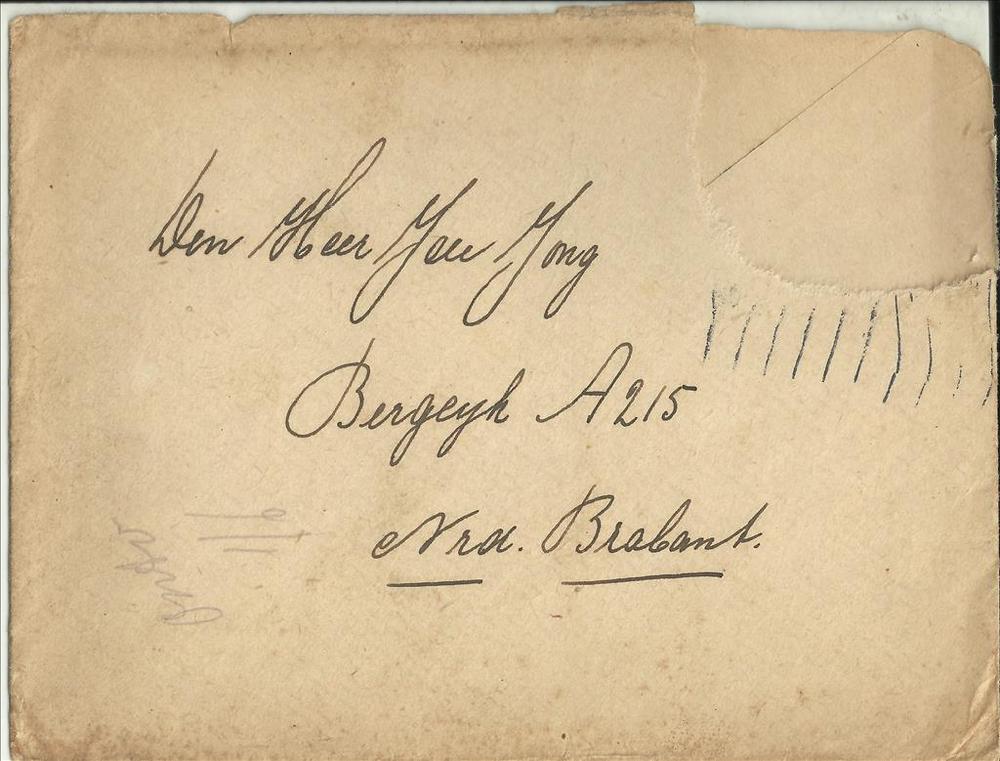 Den Heer Jan Jong
Bergeyk A215
Nrd. Brabant.